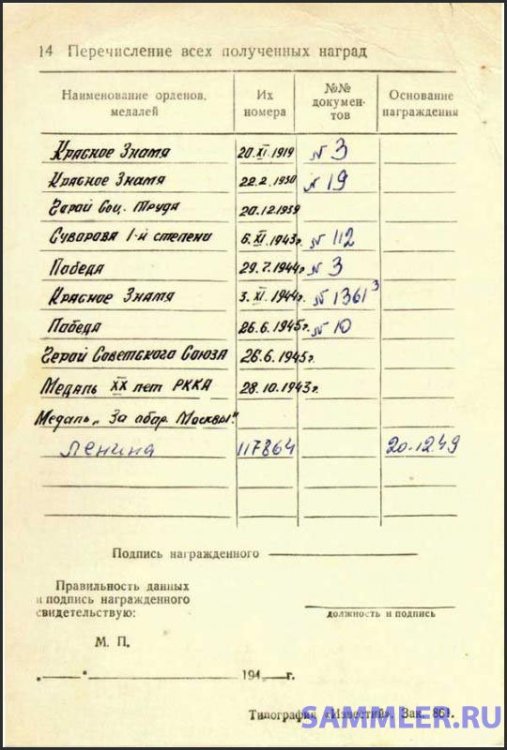 14 Перечисление всех полученных наград
Наименование орденов, медалей Их номера №№ докумен-тов Основание награждения
Красное Знамя 20.XI.1919 № 3
Красное Знамя 22.2.1930 № 19
Герой Соц. Труда 20.12.1939
Суворова 1-й степени 6.XI.1943г. № 112
Победа 29.7.1944г. № 3
Красное Знамя 3.XI.1944г. № 13613
Победа 26.6.1945г. № 10
Герой Советского Союза 26.6.1945г.
Медаль XX лет РККА 28.10.1943г.
Медаль „За обор. Москвы"
Ленина 117864 20.12.49
Подпись награжденного
Правильность данных
и подпись награжденного
свидетельствую:
должность и подпись
М. П.
„ " 194 г.
Типография «Известий». Зак. 861.
SAMMLER.RU